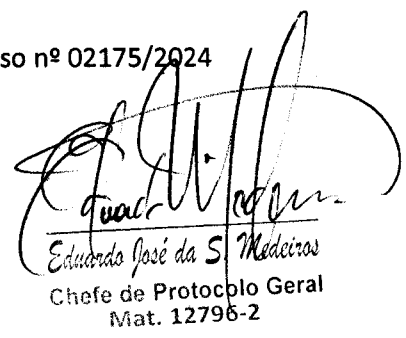 so nº 02175/2024
Eduardo José da S. Medeiros
Chefe de Protocolo Geral
Mat. 12796-2